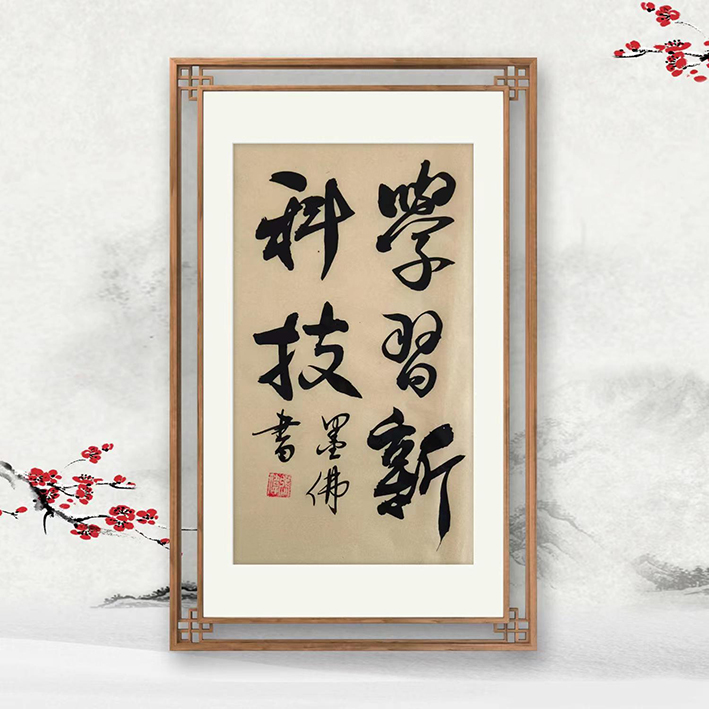 學習新
科技
墨佛
書